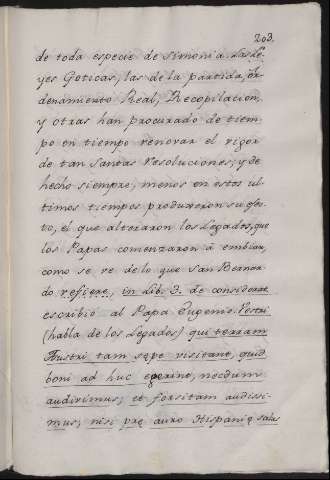 203.
de toda especie de Simonia. Las Le-
yes Goticas, las de la partida, or-
denamiento Real, Recopilacion,
y otras han procurado de tiem-
po en tiempo renovar el rigor
de tan santas resoluciones; y de
hecho siempre, menos en estos ul-
timos tiempos produxeron su efec-
to, el que alteraron los Legados, que
los Papas comenzaron à embiar,
como se ve de lo que San Bernar-
do refiere, in lib. 3. de considerat.
escribiò al Papa Eugenio. Vestri
(habla de los Legados) qui terram
Austri tam sepe visitant, quid
boni ad huc egerint, necdum
audivimus; et forsitam audissi-
mus, nisi pre auro Hispanie salus